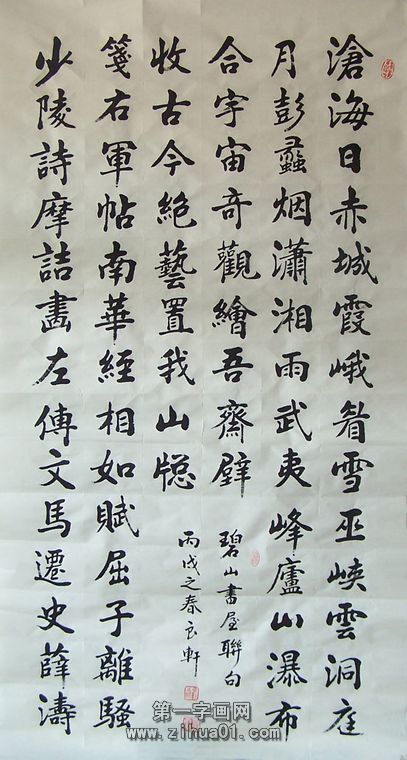 滄海日赤城霞峨眉雪巫峽雲洞庭
月彭蠡烟瀟湘雨武夷峰廬山瀑布
合宇宙奇觀繪吾齋壁
少陵詩摩詰畫左傳文馬遷史薛濤
箋右軍帖南華經相如賦屈子離騷
收古今絕藝置我山牕
碧山書屋聯句
丙戌之春良軒
第一字画网
www.zihua01.com